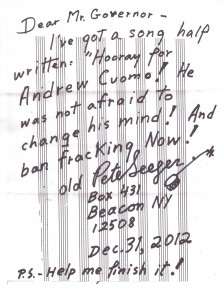 Dear Mr. Governor -
I've got a song half
written: "Hooray for
Andrew Cuomo! He
was not afraid to
change his mind! And
ban fracking Now!
old Pete Seeger
Box 431
Beacon NY
12508
Dec. 31, 2012
P.S. - Help me finish it!